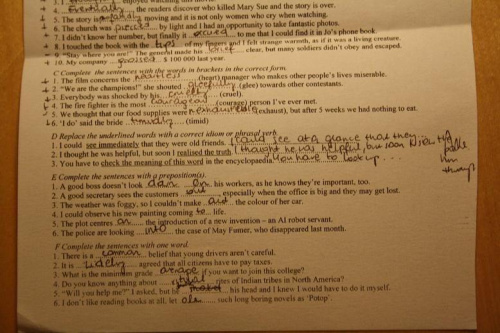 3. I ... enjoyed watching this
4. Eventually, the readers discover who killed Mary Sue and the story is over.
5. The story is ... moving and it is not only women who cry when watching.
6. The church was ... by light and I had an opportunity to take fantastic photos.
7. I didn't know her number, but finally it ... to me that I could find it in Jo's phone book.
8. I touched the book with the tips of my fingers and I felt strange warmth, as if it was a living creature.
9. "Stay where you are!" The general made his brief clear, but many soldiers didn't obey and escaped.
10. My company grossed $ 100 000 last year.
C Complete the sentences with the words in brackets in the correct form.
1. The film concerns the heartless (heart) manager who makes other people's lives miserable.
2. "We are the champions!" she shouted gleefully (glee) towards other contestants.
3. Everybody was shocked by his (cruel).
4. The fire fighter is the most courageous (courage) person I've ever met.
5. We thought that our food supplies were (exhaust), but after 5 weeks we had nothing to eat.
6. 'I do' said the bride timidly (timid)
D Replace the underlined words with a correct idiom or phrasal verb.
1. I could see immediately that they were old friends. I could see at a glance that they
2. I thought he was helpful, but soon I realised the truth. I thought he was helpful, but soon I
him through
3. You have to check the meaning of this word in the encyclopaedia. You have to look up...
E Complete the sentences with a preposition(s).
1. A good boss doesn't look down on his workers, as he knows they're important, too.
2. A good secretary sees the customers out, especially when the office is big and they may get lost.
3. The weather was foggy, so I couldn't make out the colour of her car.
4. I could observe his new painting coming to life.
5. The plot centres on the introduction of a new invention – an AI robot servant.
6. The police are looking into the case of May Fumer, who disappeared last month.
F Complete the sentences with one word.
1. There is a common belief that young drivers aren't careful.
2. It is widely agreed that all citizens have to pay taxes.
3. What is the minimum grade average if you want to join this college?
4. Do you know anything about tribal rites of Indian tribes in North America?
5. "Will you help me?" I asked, but he his head and I knew I would have to do it myself.
6. I don't like reading books at all, let such long boring novels as 'Potop'.